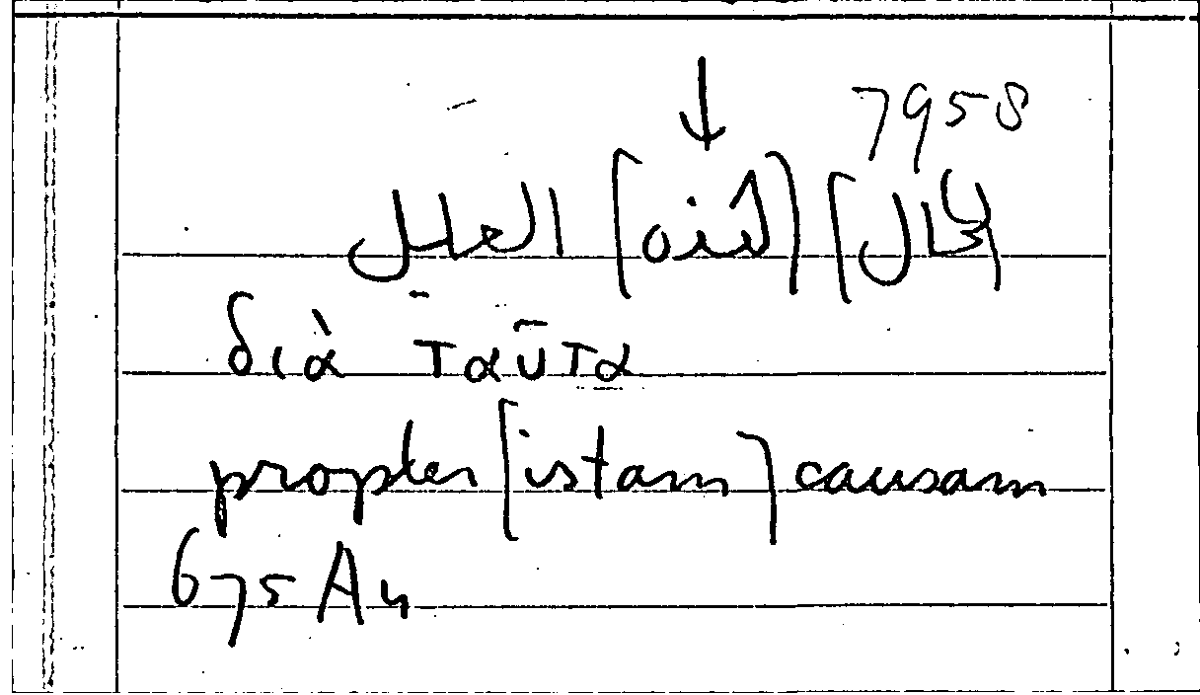 7958
[لحال] [هذه] العلل
διὰ ταῦτα
propter [istam] causam
675 A 4